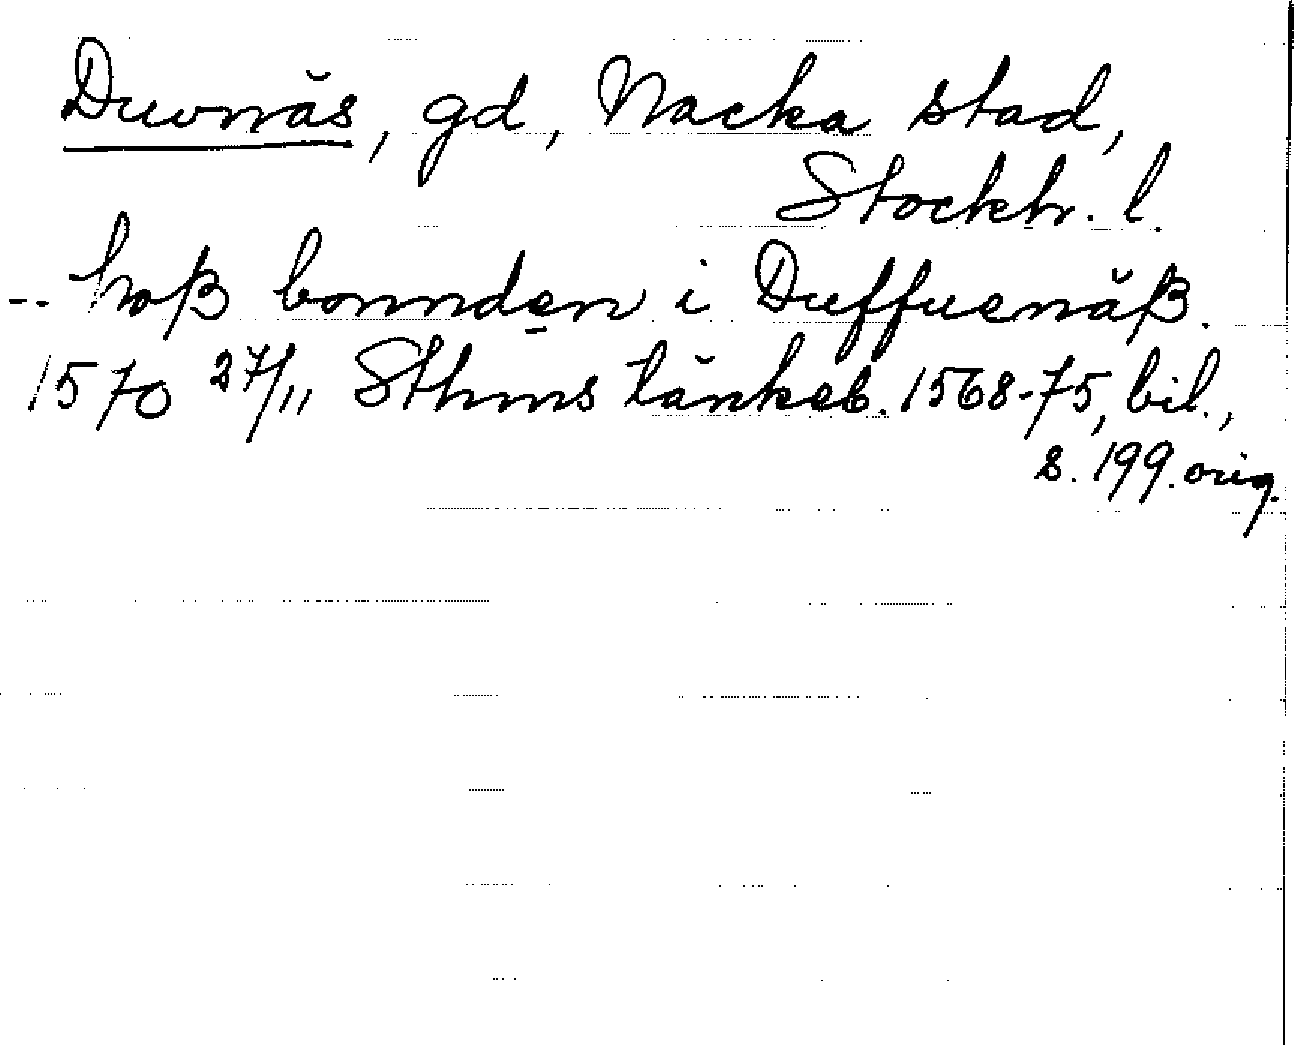 Duvnäs, gd, Nacka stad,
Stockh. l.
-- hoß bonnden i Duffuenäß.
1570 27/11 Sthms tänkeb. 1568-75, bil.,
s. 199. orig.